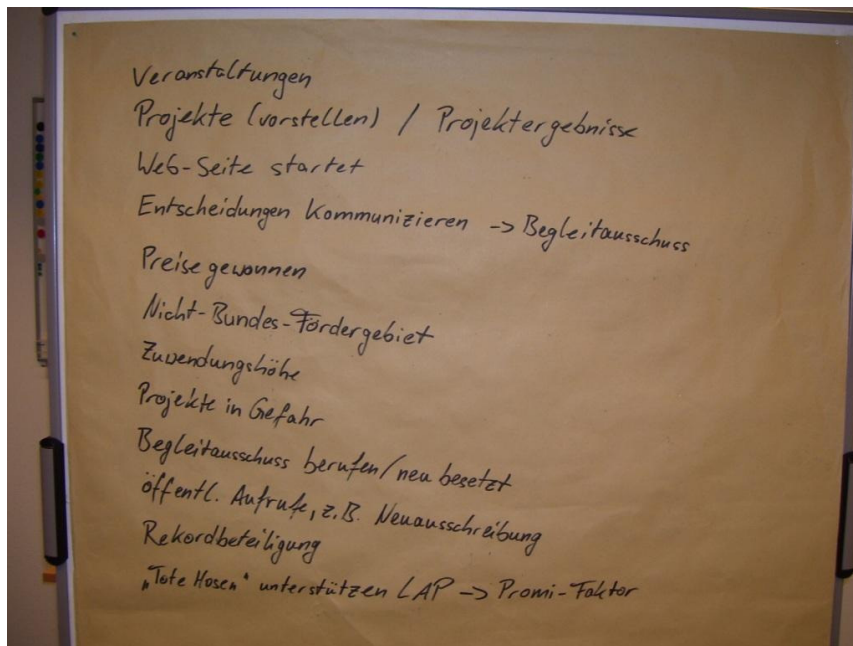 Veranstaltungen
Projekte (vorstellen) / Projektergebnisse
Web-Seite startet
Entscheidungen kommunizieren -> Begleitausschuss
Preise gewonnen
Nicht-Bundes-Fördergebiet
Zuwendungshöhe
Projekte in Gefahr
Begleitausschuss berufen/neu besetzt
öffentl. Aufrufe, z.B. Neuausschreibung
Rekordbeteiligung
„Tote Hosen" unterstützen LAP -> Promi-Faktor